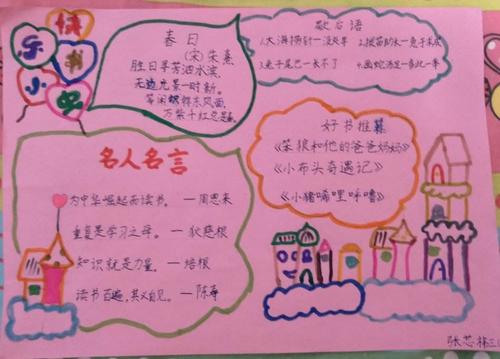 快
乐
书
小
屋
春日
(宋)朱熹
胜日寻芳泗水滨,
无边光景一时新。
等闲识得东风面,
万紫千红总是春。
歇后语
1.大海捞针一没处寻
2.拔苗助长一
3.兔子尾巴一长不了
4.画蛇添足一多此一举
好书推慕
《笨狼和他的爸爸妈妈》
《小布头奇遇记》
《小猪唏哩呼噜》
名人名言
为中华崛起而读书。一周恩来
重复是学习之母。一狄慈根
知识就是力量。一培根
读书百遍,其义自见。一陈寿
张芯